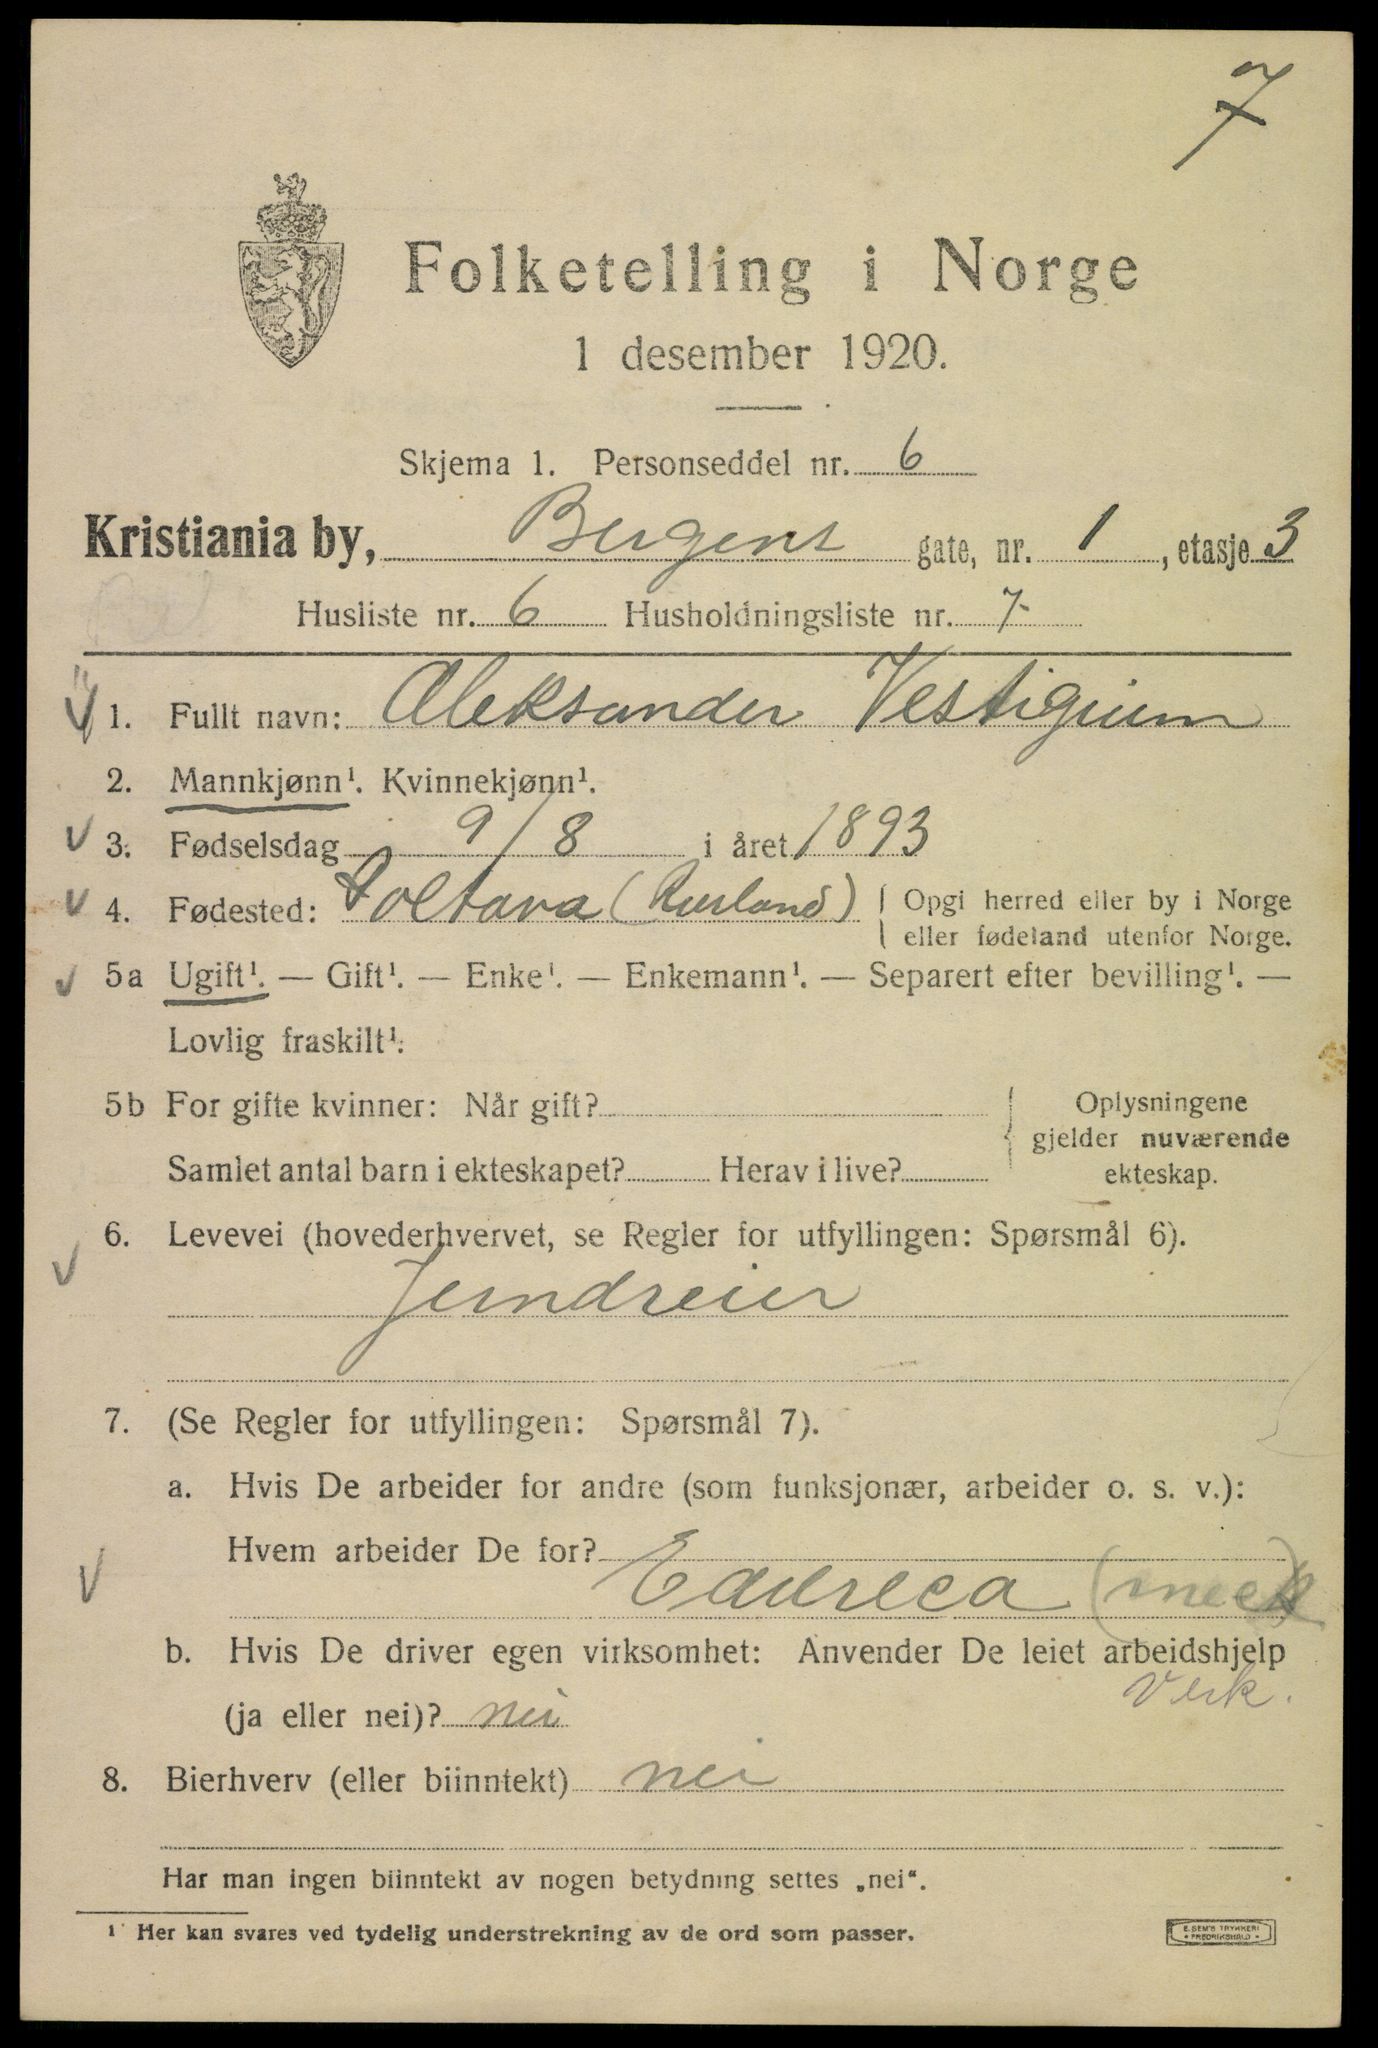 7
Folketelling i Norge
1 desember 1920.
Skjema 1. Personseddel nr. 6
Kristiania by, Bergens gate, nr. 1, etasje 3
Husliste nr. 6 Husholdningsliste nr. 7
1. Fullt navn: Aleksander Vestigium
2. Mannkjønn¹. Kvinnekjønn¹.
3. Fødselsdag 9/8 i året 1893
4. Fødested: Poltava (Rusland) Opgi herred eller by i Norge
eller fødeland utenfor Norge.
5a Ugift¹. — Gift¹. — Enke¹. — Enkemann¹. — Separert efter bevilling¹. —
Lovlig fraskilt¹.
5b For gifte kvinner: Når gift? Oplysningene
gjelder nuværende
Samlet antal barn i ekteskapet? Herav i live? ekteskap.
6. Levevei (hovederhvervet, se Regler for utfyllingen: Spørsmål 6).
Jerndreier
7. (Se Regler for utfyllingen: Spørsmål 7).
a. Hvis De arbeider for andre (som funksjonær, arbeider o. s. v.):
Hvem arbeider De for?
(mek
b. Hvis De driver egen virksomhet: Anvender De leiet arbeidshjelp
Verk.
(ja eller nei)? nei
8. Bierhverv (eller biinntekt) nei
Har man ingen biinntekt av nogen betydning settes „nei“.
¹ Her kan svares ved tydelig understrekning av de ord som passer.
E. SEM'S TRYKKERI
FREDRIKSHALD